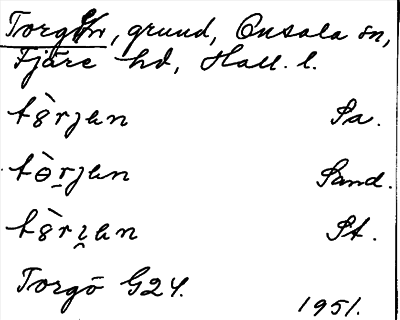 Torgön, grund, Onsala sn,
Fjäre hd, Hall. l.
tȍrjen Sa.
tòrjen Sand.
St.
Torgö G24.
1951.